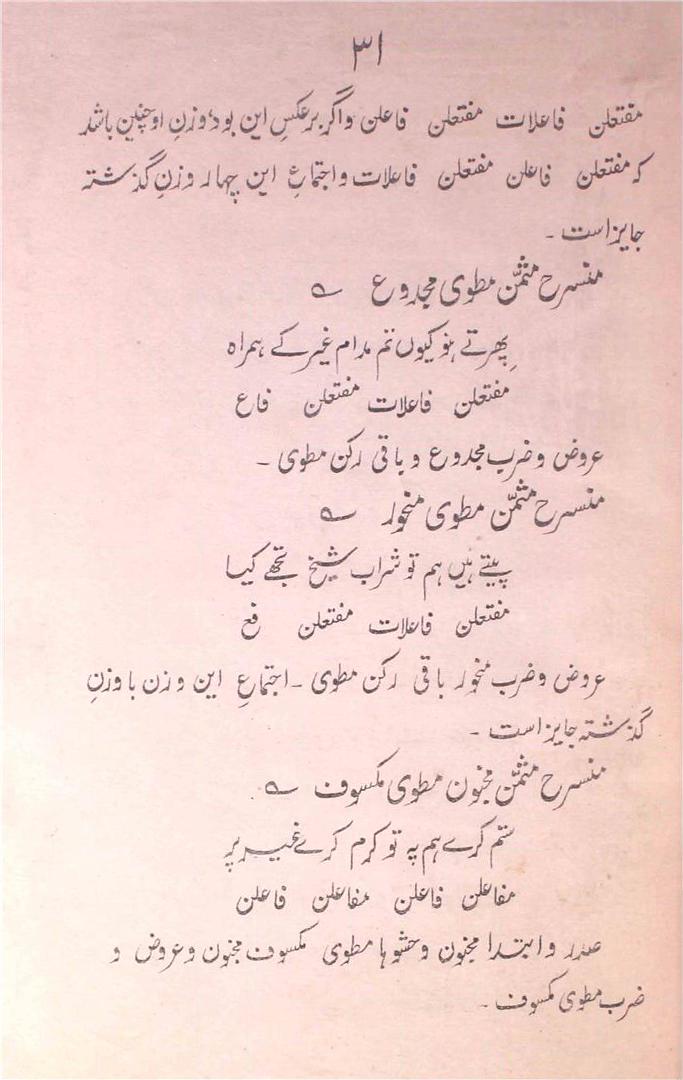 ۳۱
مفتعلن فاعلات مفتعلن فاعلن واگر برعکسِ این بود، وزنِ او چنین باشد
کہ مفتعلن فاعلن مفتعلن فاعلات و اجتماعِ این چہار وزنِ گذشتہ
جایز است ۔
منسرح مثمّن مطوی مجدوع ؎
پِھرتے ہو کیوں تم مدام غیر کے ہمراہ
مفتعلن فاعلات مفتعلن فاع
عروض و ضرب مجدوع و باقی رکن مطوی ۔
منسرح مثمّن مطوی منحور ؎
پیتے ہیں ہم تو شراب شیخ تجھے کیا
مفتعلن فاعلات مفتعلن فع
عروض و ضرب منحور باقی رکن مطوی ۔ اجتماعِ این وزن با وزنِ
گذشتہ جایز است ۔
منسرح مثمّن مخبون مطوی مکسوف ؎
ستم کرے ہم پہ تو کرم کرے غیر پر
مفاعلن فاعلن مفاعلن فاعلن
صدر و ابتدا مخبون و حشوہا مطوی مکسوف مخبون و عروض و
ضرب مطوی مکسوف ۔